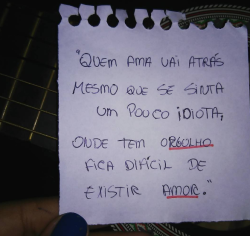 "QUEM AMA VAI ATRÁS
MESMO QUE SE SINTA
UM POUCO IDIOTA,
ONDE TEM ORGULHO
FICA DIFÍCIL DE
EXISTIR AMOR."